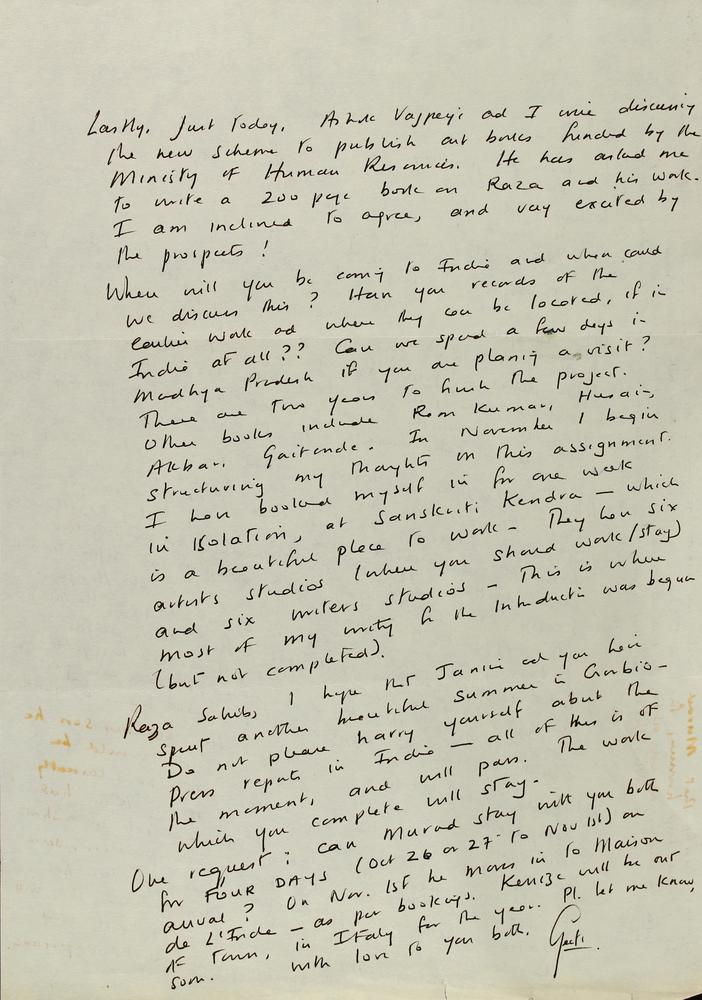 Lastly, Just Today, Ashok Vajpeyi ad I were discussing
the new scheme to publish art books funded by the
Ministry of Human Resources. He has asked me
to write a 200 page book on Raza and his work.
I am inclined to agree, and very excited by
the prospects!
When will you be coming to India and when could
we discuss this? Have you records of the
earlier work ad where they can be located, if in
India at all?? Can we spend a few days in
Madhya Pradesh if you are planing a visit?
There are two years to finish the project.
Other books include Ram Kumar, Husain,
Akbar, Gaitonde. In November I begin
structuring my thoughts on this assignment.
I have booked myself in for one week
in isolation, at Sanskriti Kendra – which
is a beautiful place to work – They have six
artists studios (where you should work/stay)
and six writers studios – This is where
most of my writing for the Introduction was begun
(but not completed).
Raza Sahib, I hope that Janine ad you have
spent another beautiful summer in Gorbio –
Do not please harry yourself about the
Press reports in India – all of this is of
the moment, and will pass. The work
which you complete will stay.
One request: can Murad stay with you both
for FOUR DAYS (Oct 26 or 27 to Nov 1st) on
arrival? On Nov. 1st he moves in to Maison
de L'Inde – as per bookings. Kenize will be out
of Town, in Italy for the year. Pl. let me know,
soon. with love to you both. Geeti.